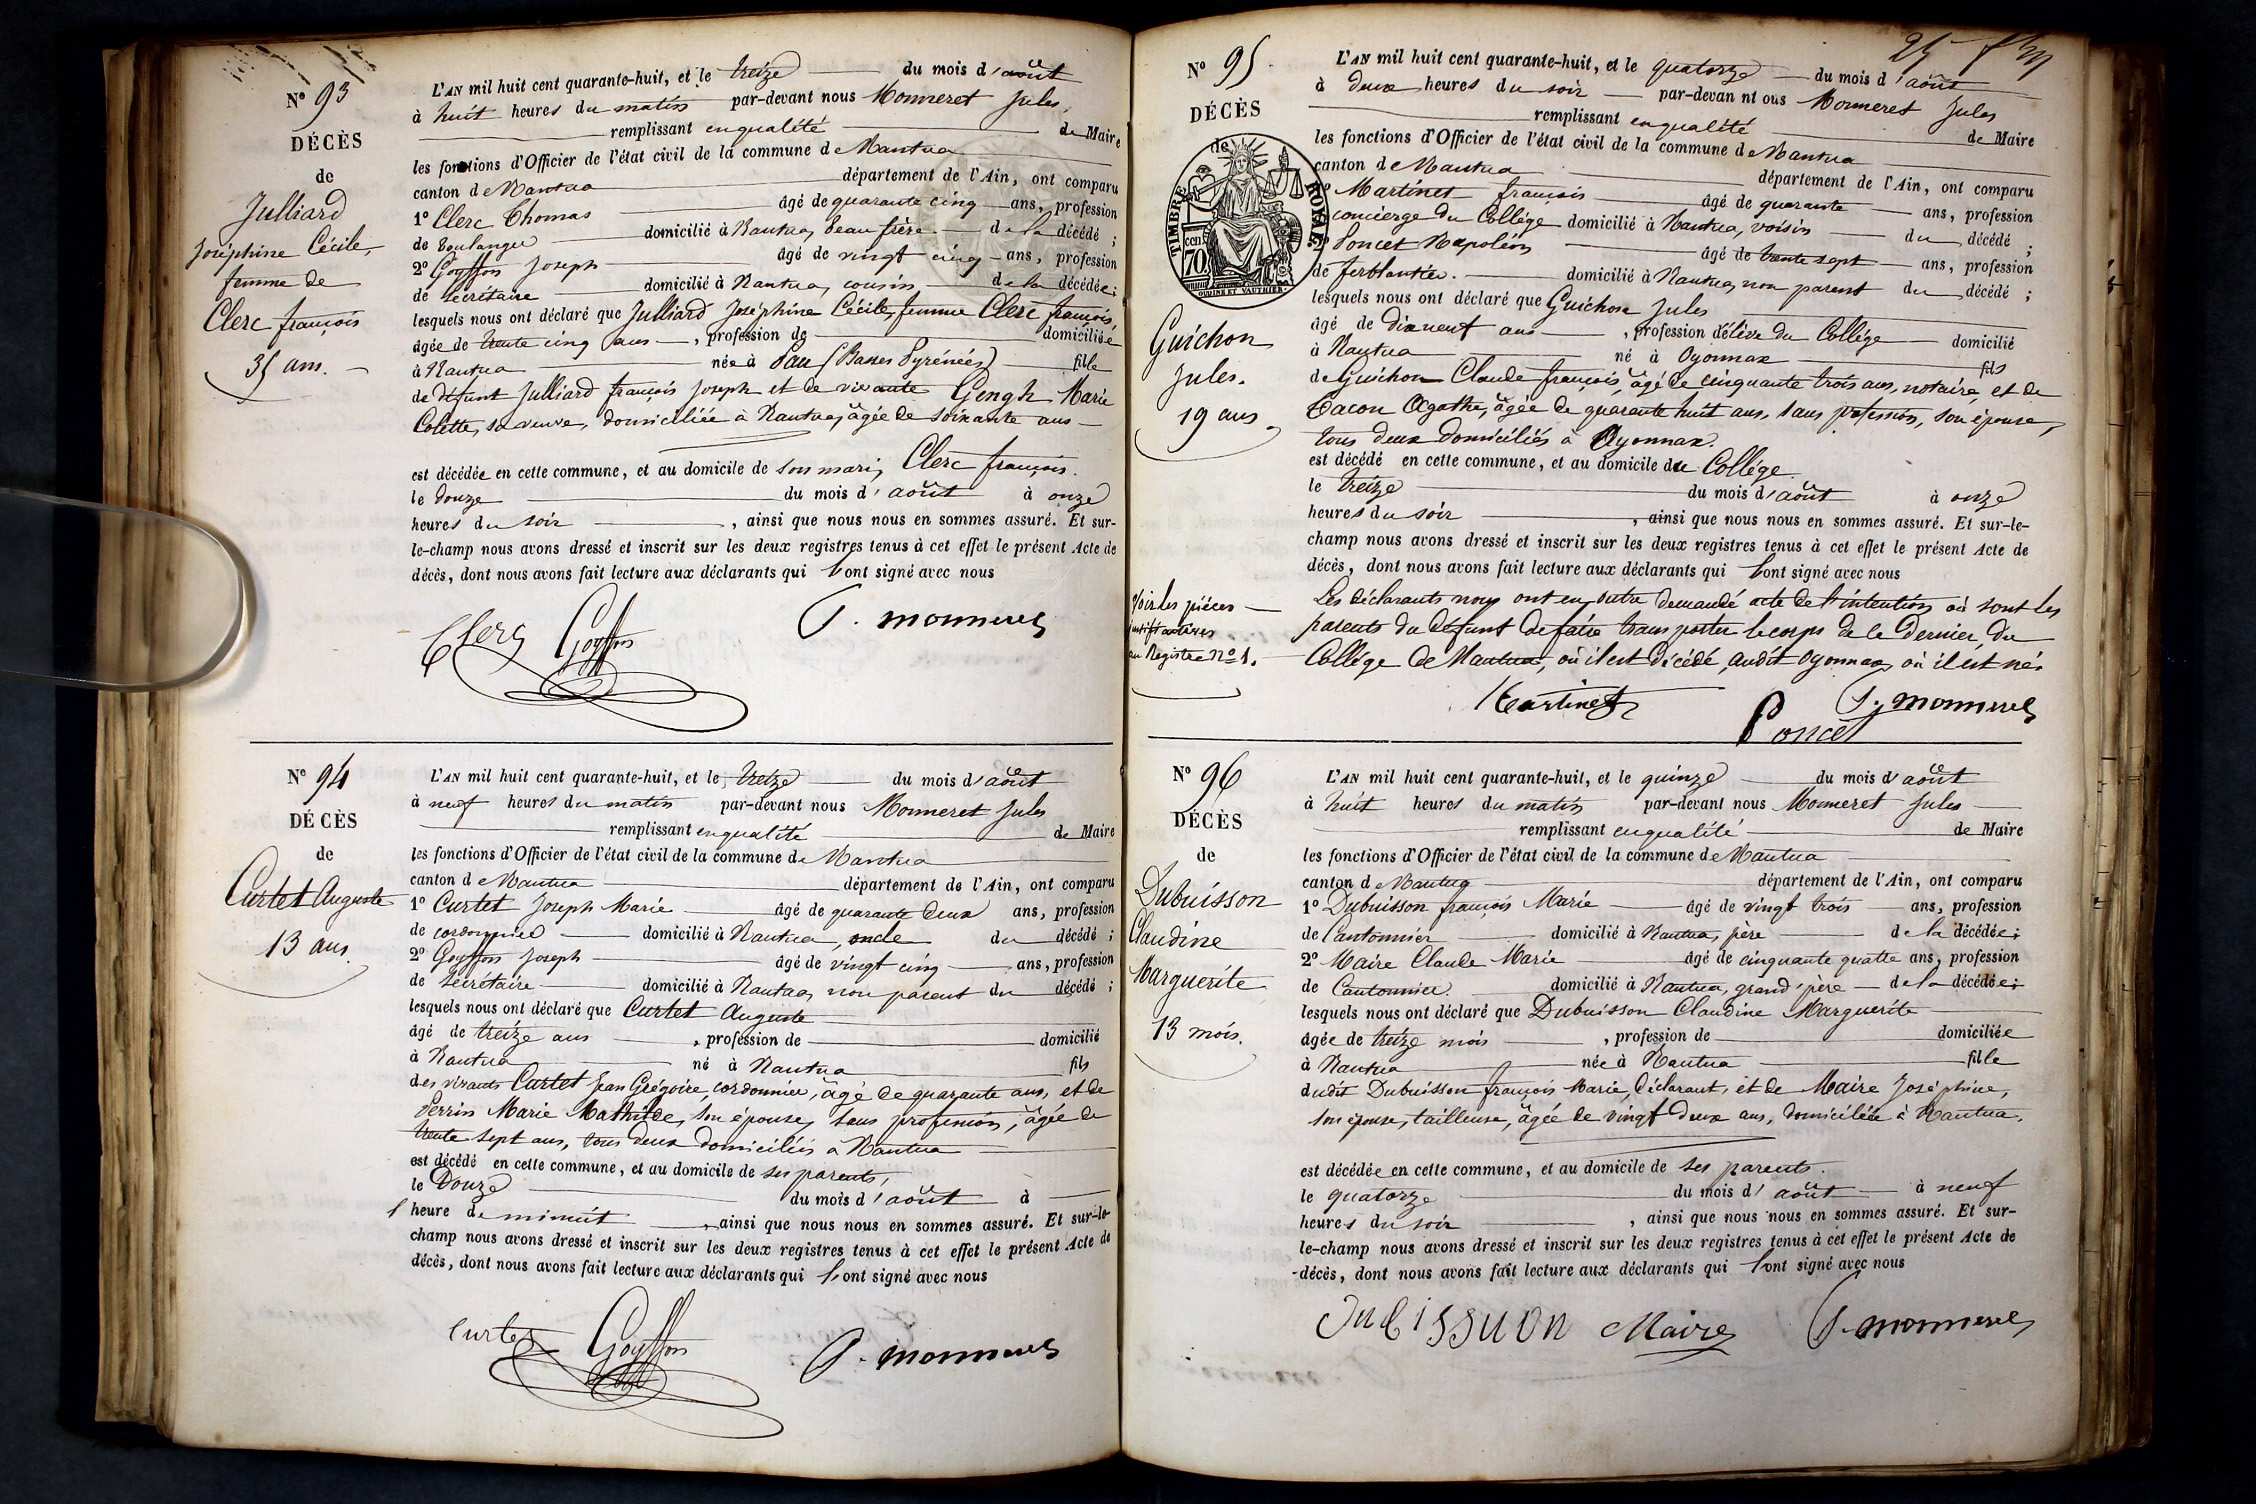 N° 93
DÉCÈS
de
Julliard
Joséphine Cécile,
femme de
Clerc françois
35 ans.
L'AN mil huit cent quarante-huit, et le treize du mois d'août
à huit heures du matin par-devant nous Monneret Jules,
remplissant en qualité de Maire
les fonctions d'Officier de l'état civil de la commune de Nantua
canton de Nantua département de l'Ain, ont comparu
1° Clerc Thomas âgé de quarante cinq ans, profession
de Boulanger domicilié à Nantua, beau frère de la décédé ;
2° Goyffon Joseph âgé de vingt cinq ans, profession
de secrétaire domicilié à Nantua, cousin, de la décédée ;
lesquels nous ont déclaré que Julliard Joséphine Cécile, femme Clerc françois,
âgée de trente cinq ans, profession de domiciliée
à Nantua née à Pau (Basses Pyrénées) fille
de défunt Julliard françois Joseph et de vivante Gengh Marie
Colette, sa veuve, domiciliée à Nantua, âgée de soixante ans
est décédée en cette commune, et au domicile de son mari, Clerc françois.
le douze du mois d'août à onze
heures du soir, ainsi que nous nous en sommes assuré. Et sur-
le-champ nous avons dressé et inscrit sur les deux registres tenus à cet effet le présent Acte de
décès, dont nous avons fait lecture aux déclarants qui l'ont signé avec nous
Clerc Goyffon J. Monneret
N° 94
DÉCÈS
de
Curtet Auguste
13 ans.
L'AN mil huit cent quarante-huit, et le treize du mois d'août
à neuf heures du matin par-devant nous Monneret Jules
remplissant en qualité de Maire
les fonctions d'Officier de l'état civil de la commune de Nantua
canton de Nantua département de l'Ain, ont comparu
1° Curtet Joseph Marie âgé de quarante deux ans, profession
de cordonnier domicilié à Nantua, oncle du décédé ;
2° Goyffon Joseph âgé de vingt cinq ans, profession
de secrétaire domicilié à Nantua, non parent du décédé ;
lesquels nous ont déclaré que Curtet Auguste
âgé de treize ans, profession de domicilié
à Nantua né à Nantua fils
des vivants Curtet Jean Grégoire, cordonnier, âgé de quarante ans, et de
Perrin Marie Mathilde, son épouse, sans profession, âgée de
trente sept ans, tous deux domiciliés à Nantua
est décédé en cette commune, et au domicile de ses parents,
le Douze du mois d'août à
heure de minuit, ainsi que nous nous en sommes assuré. Et sur-le-
champ nous avons dressé et inscrit sur les deux registres tenus à cet effet le présent Acte de
décès, dont nous avons fait lecture aux déclarants qui l'ont signé avec nous
Curtet Goyffon J. Monneret
25
N° 95
DÉCÈS
de
TIMBRE ROYAL
70 cen
OUDINE ET VAUTHIER
Guichon
Jules.
19 ans
L'AN mil huit cent quarante-huit, et le quatorze du mois d'août
à deux heures du soir par-devan nt ous Monneret Jules
remplissant en qualité de Maire
les fonctions d'Officier de l'état civil de la commune de Nantua
canton de Nantua département de l'Ain, ont comparu
1° Martinet françois âgé de quarante ans, profession
concierge du Collége domicilié à Nantua, voisin du décédé ;
2° Poncet Napoléon âgé de trente sept ans, profession
de ferblantier. domicilié à Nantua, non parent du décédé ;
lesquels nous ont déclaré que Guichon Jules
âgé de dix neuf ans, profession d'élève du Collége domicilié
à Nantua né à Oyonnax fils
de Guichon Claude françois, âgé de cinquante trois ans, notaire, et de
Tacon Agathe, âgée de quarante huit ans, sans profession, son épouse,
tous deux domiciliés à Oyonnax.
est décédé en cette commune, et au domicile du Collége
le treize du mois d'août à onze
heures du soir, ainsi que nous nous en sommes assuré. Et sur-le-
champ nous avons dressé et inscrit sur les deux registres tenus à cet effet le présent Acte de
décès, dont nous avons fait lecture aux déclarants qui l'ont signé avec nous
Les déclarants nous ont en outre demandé acte de l'intention où sont les
parents du défunt de faire transporter le corps de ce dernier, du
Collége de Nantua, où il est décédé, audit Oyonnax où il est né.
Voir les pièces
justificatives
au Registre N° 1.
Martinet Poncet J. Monneret
N° 96
DÉCÈS
de
Dubuisson
Claudine
Marguerite
13 mois.
L'AN mil huit cent quarante-huit, et le quinze du mois d'août
à huit heures du matin par-devant nous Monneret Jules
remplissant en qualité de Maire
les fonctions d'Officier de l'état civil de la commune de Nantua
canton de Nantua département de l'Ain, ont comparu
1° Dubuisson françois Marie âgé de vingt trois ans, profession
de Cantonnier domicilié à Nantua, père de la décédée ;
2° Maire Claude Marie âgé de cinquante quatre ans, profession
de Cantonnier. domicilié à Nantua, grand'père de la décédée ;
lesquels nous ont déclaré que Dubuisson Claudine Marguerite
âgée de treize mois, profession de domiciliée
à Nantua née à Nantua fille
dudit Dubuisson françois Marie, déclarant, et de Maire Joséphine,
son épouse, tailleuse, âgée de vingt deux ans, domiciliée à Nantua.
est décédée en cette commune, et au domicile de ses parents.
le quatorze du mois d'août à neuf
heures du soir, ainsi que nous nous en sommes assuré. Et sur-
le-champ nous avons dressé et inscrit sur les deux registres tenus à cet effet le présent Acte de
décès, dont nous avons fait lecture aux déclarants qui l'ont signé avec nous
Dubissuon Maire J. Monneret